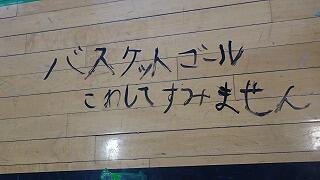 バスケットゴール
こわしてすみません